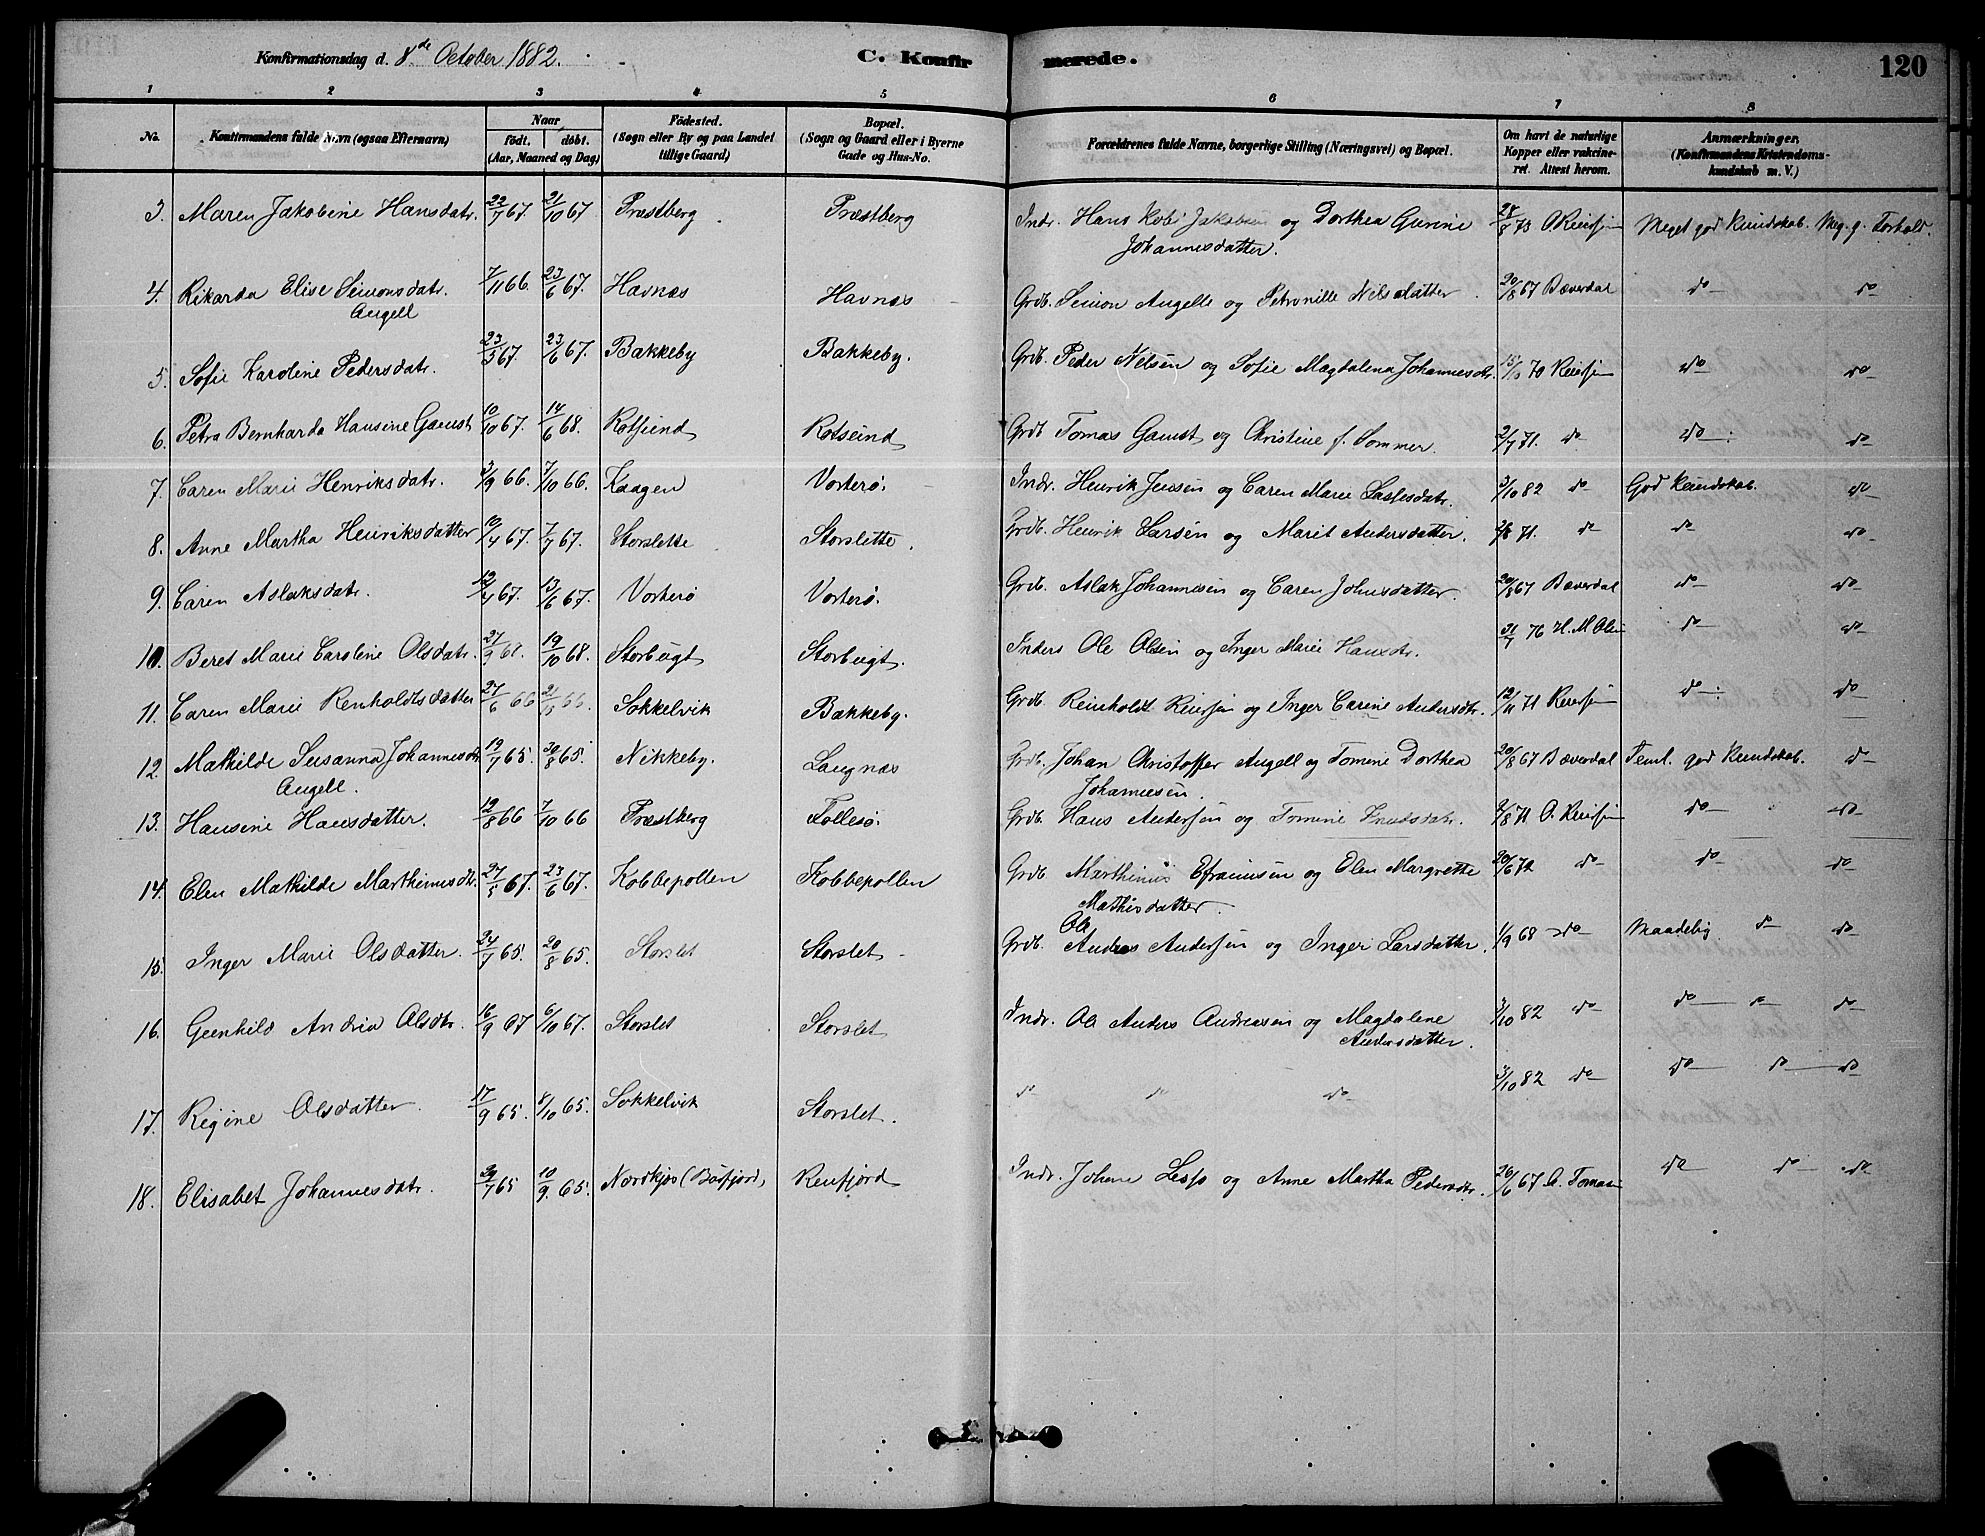 Konfirmationsdag d. 8de October 1882. C. Konfirmerede. 120
1 2 3 4 5 6 7 8
No. Konfirmandens fulde Navn (ogsaa Efternavn) Naar født. døbt. (Aar, Maaned og Dag) Fødested. (Sogn eller By og paa Landet tillige Gaard) Bopæl. (Sogn og Gaard eller i Byerne Gade og Hus-No. Forældrenes fulde Navne, borgerlige Stilling (Næringsvei) og Bopæl. Om havt de naturlige Kopper eller vakcineret. Attest herom. Anmærkninger. (Konfirmandens Kristendomskundskab m. V.)
3. Maren Jakobine Hansdatr. 22/7 67. 21/10 67 Præstberg Præstberg Indr. Hans Kobi Jakobsen og Dorthea Gurine 28/8 73 O Reiersen Meget god Kundskab. Meg. g. Forhold
Johannesdatter.
4. Rikarda Elise Simonsdatr. 7/11 66. 23/6 67. Havnæs Havnæs Grdb. Simon Angelle og Petronille Nilsdatter 20/8 67 Bæverdal do do
Angell
5. Sofie Karoline Pedersdatr. 23/3 67. 23/6 67. Bakkeby Bakkeby. Grdb. Peder Nilsen og Sofie Magdalena Johannesdtr. 15/10 70 Reiersen do do
6. Petra Bernharda Hansine Gamst 10/10 67. 14/6 68. Rotsund Rotsund Grdb Tomas Gamst og Christine f. Sommer. 2/7 71. do do do
7. Caren Marie Henriksdatr. 3/9 66. 7/10 66. Kaagen Vorterø. Indr. Henrik Jensen og Caren Marie Lassesdatr. 3/10 82 do God Kundskab. do
8. Anne Martha Henriksdatter 10/4 67. 7/7 67. Storslette Storslette. Grdb. Henrik Larsen og Marit Andersdatter. 2/8 71. do do do
9. Caren Aslaksdatr. 12/4 67. 13/6 67. Vorterø Vorterø. Grdb. Aslak Johannesen og Caren Johnsdatter. 20/8 67 Bæverdal do do
10. Beret Marie Caroline Olsdatr. 27/9 68. 19/10 68. Storbugt Storbugt. Inders Ole Olsen og Inger Marie Hansdtr. 31/7 76 H. M. Olsen do do
11. Caren Marie Renholdtsdatter 27/6 66 21/10 66. Sokkelvik Bakkeby. Grdb. Reinholdt Reiersen og Inger Carine Andersdtr. 12/11 71 Reiersen do do
12. Mathilde Susanna Johannesdtr 19/7 65. 20/8 65. Nikkeby. Langnæs Grdb. Johan Christoffer Angell og Tomine Dorthea 20/8 67 Bæverdal Teml. god Kundskab. do
Angell. Johannesen.
13. Hansine Hansdatter. 12/8 66 7/10 66 Præstberg Follesø. Grdb. Hans Andersen og Tomine Knudsdatr. 2/8 71 O. Reiersen do do
14. Elen Mathilde Marthinusdtr. 27/5 67. 23/6 67. Kobbepollen Kobbepollen Grdb Marthinus Efraimsen og Elen Margrette 20/6 72 do do do
Mathisdatter.
15. Inger Marie Olsdatter. 24/7 65. 20/8 65. Storslet Storslet Grdb. Ole Anders Andersen og Inger Larsdatter. 1/9 68 do Maadelig do do
16. Gunhild Andrea Olsdtr. 16/9 67 6/10 67. Storslet Storslet Indr. Ole Anders Andreasen og Magdalene 3/10 82 do do do do
Andersdatter.
17. Regine Olsdatter. 17/9 65. 8/10 65. Sokkelvik Storslet. do do do 3/10 82 do do do do
18. Elisabet Johannesdatr. 30/7 65 10/9. 65. Nordkjos (Bursfjord) Renfjord Indr. Johane Lesjo og Anne Martha Pedersdtr. 26/6 67 A. Tomasen do do do